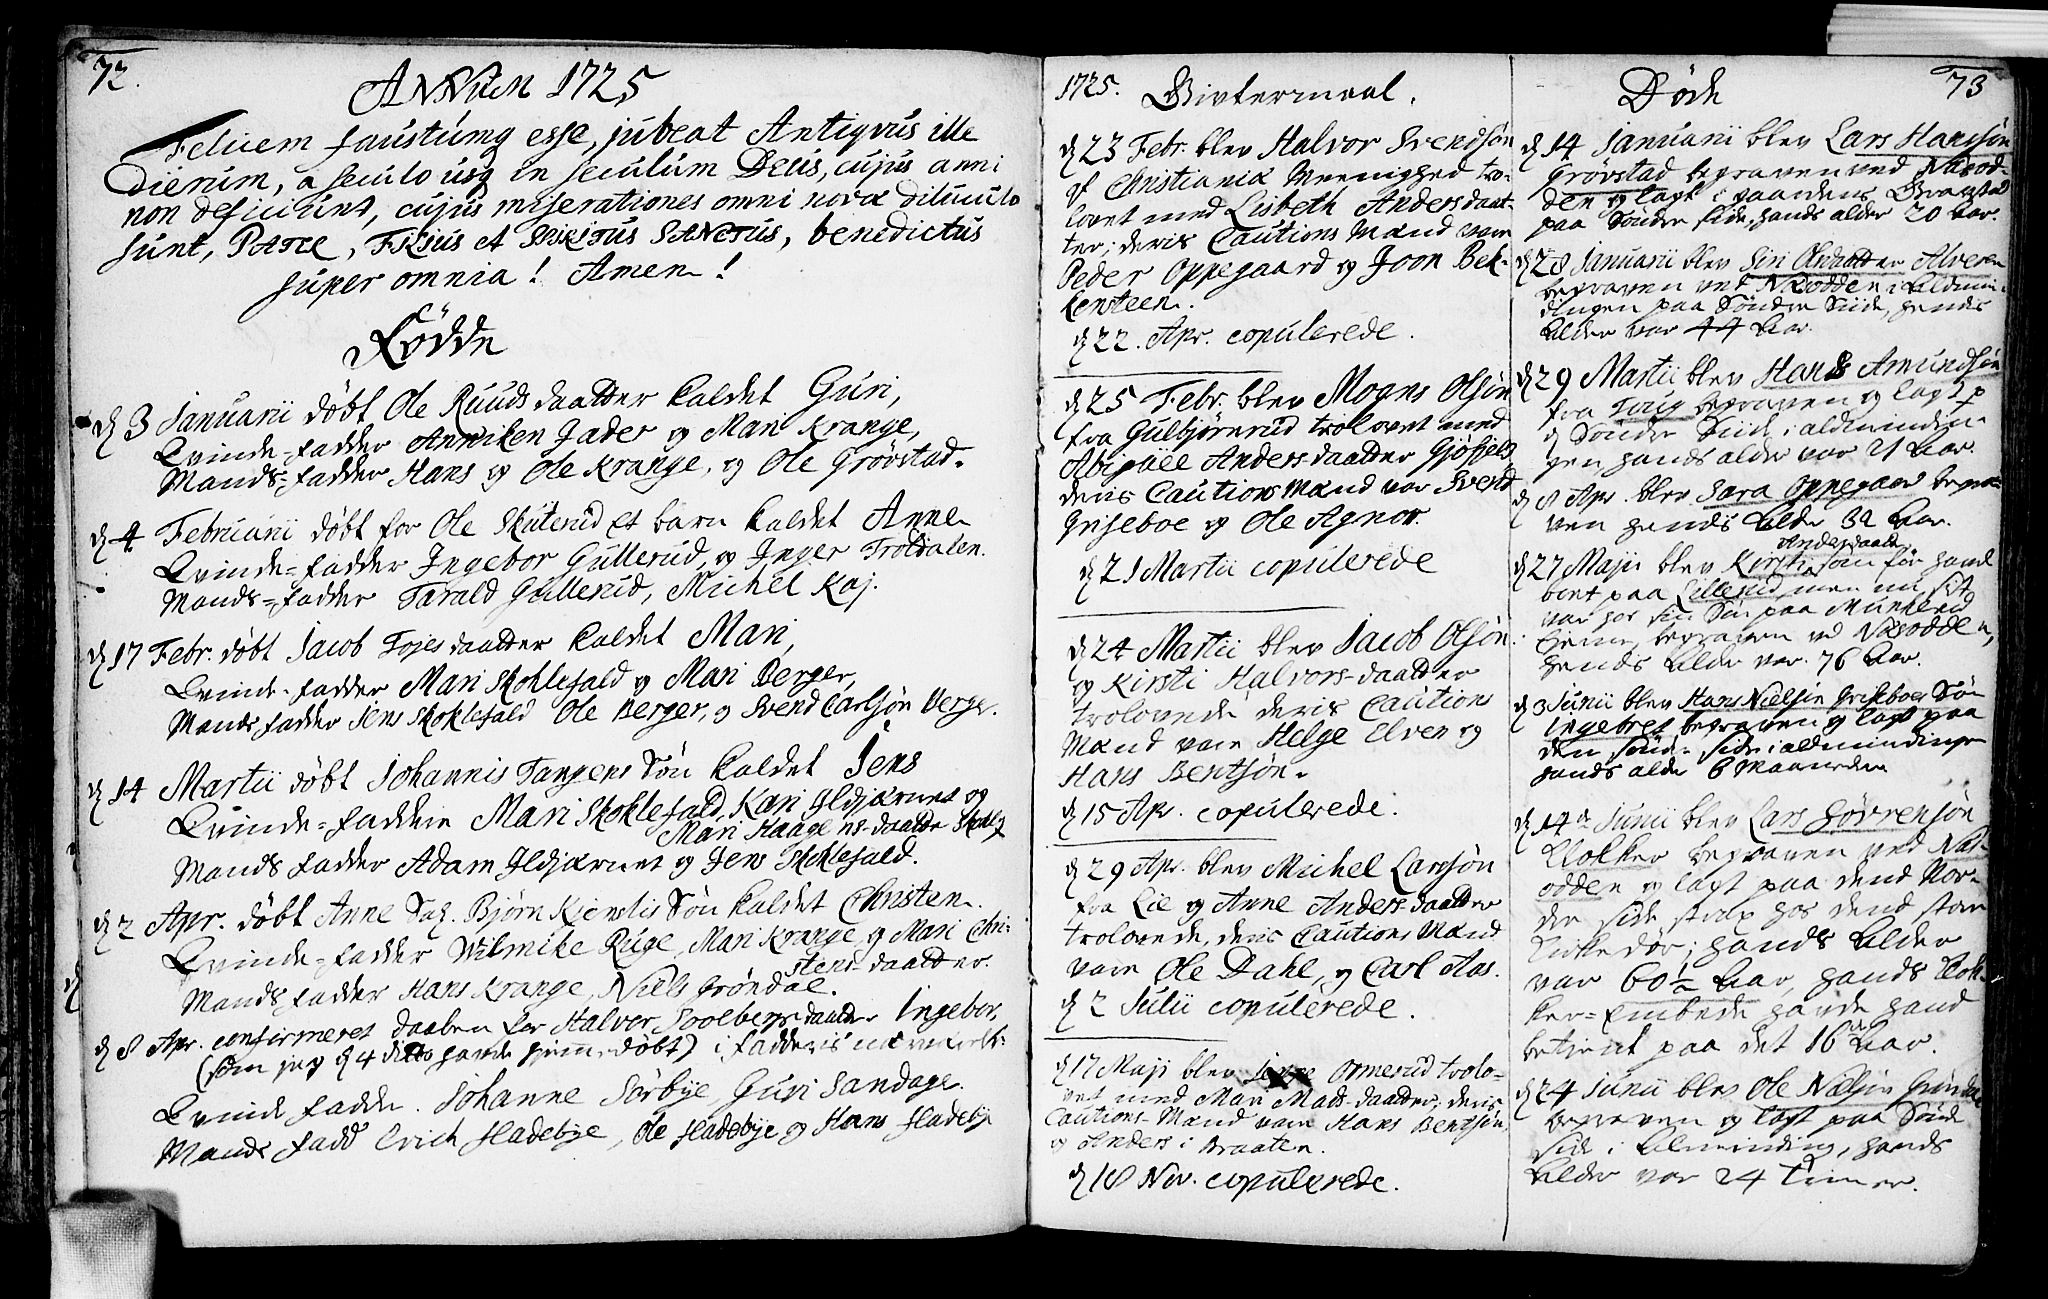 72.
ANNUM 1725
Felicem faustumq esse, jubeat Antiqvus ille
dierum, a seculo usq in seculum Deus, cujus anni
non deficiunt, cujus miserationes omni nova diluculo
sunt, PATER, FILIUS et SPIRITUS SANCTUS, benedictus
super omnia! Amen!
Födde
d 3 Januarii döbt Ole Ruuds daatter kaldet Guri,
Qvinde-fadder Anniken Jader og Mari Krange,
Mands-fadder Hans og Ole Krange, og Ole Grövstad.
d 4 Februarii döbt for Ole Skuterud et barn kaldet Anne
Qvinde-fadder Ingebor Gullerud, og Inger Troldalen.
Mands-fadder Tarald Gullerud, Michel Kaj.
d 17 Febr. döbt Jacob Tojes daatter kaldet Mari,
Qvinde-fadder Mari Skoklefald og Mari Berger,
Mands fadder Jens Skoklefald Ole Berger, og Svend Carlsön Berger.
d 14 Martii döbt Johannis Tangens Sön kaldet Jens
Qvinde-faddere Mari Skoklefald, Kari Ildjærnet og
Mari Haagens-daatter
Mands fadder Adam Ildjærnet og Jens Skoklefald.
d 2 Apr. döbt Anne Bjørn Kierstis Sön kaldet Christen.
Qvinde-fadder Wilmike Ruge, Mari Krange og Mari Chri-
stens-daatter.
Mands fadder Hans Krange, Niels Gröndal.
d 8 Apr. confirmeret daaben for Halvor Soolbergs daatter Ingebor,
(som jeg d 4 ditto hafde hjemmedöbt) i fadderis
Qvinde fadder. Johanne Sörbye, Guri Sandage.
Mands fadd Erich fladebye, Ole fladebye og Hans fladeby
1725. Givtermaal.
d 23 Febr. blev Halvor Svendsön
af Christiania Meenighed tro-
lovet med Lisbeth Andersdaat-
ter; deris Cautions Mænd vare
Peder Oppegaard og Joon Bek-
kensteen.
d 22. Apr. copulerede.
d 25 Febr. blev Mogns Olsön
fra Gulbjörnrud trolovet med
Abigaël Anders-daatter Gjöfjeld
deris Cautions Mænd var Svend
Griseboe og Ole Agnor.
d 21 Martii copulerede
d 24 Martii blev Jacob Olsön
og Kirsti Halvors-daatter
trolovede deris Cautions
Mænd vare Helge Elven og
Hans Bentsön.
d 15 Apr. copulerede.
d 29 Apr. blev Michel Larsön
fra Lie og Anne Anders-daatter
trolovede, deris Cautions Mænd
vare Ole Dahl, og Carl Aas.
d 2 Julii copulerede.
d 17 Maji blev Ormerud trolo-
vet med Mari Mads-daatter; deris
Cautions-Mænd vare Hans Bentsön,
og Anders i Braaten.
d 18 Nov. copulerede.
73
Döde
d 14 Januarii blev Lars Hanssön
Grövstad begraven ved Næsod-
den og lagt i gaardens Gravsted
paa Söndre side, hands alder 20 Aar.
d 28 Januarii blev Siri Olsdatter Alveren
begraven ved Næsodden i Almin-
dingen paa Söndre Siide, hendis
Alder var 44 Aar.
d 29 Martii blev Hans Amundsön
fra Toug begraven og lagt p
d Sönder Siide i almindin-
gen, hands alder var 21 Aar.
d 8 Apr. blev Sara Oppegaard begra-
ven hendis Alder 32 Aar.
Andersdaatter
d 27 Maji blev Kirsti som för hand
boet paa Lillerud, men nu sit
var hos sin Sön paa Munkerud
hjemme, begraven ved Næsodden,
hendis Alder var. 76 Aar.
d 3 Junii blev Hans Nielsön Griseboes Sön
Ingebret begraven og lagt paa
den Sönd. Side i almindingen
hands alder 6 Maaneder
d 14 Junii blev Lars Sörrensön
Klokker begraven ved Næs-
odden og lagt paa dend Nor-
dre side strax hos dend store
Kirkedör; hands Alder
var 60½ Aar, hands Klok-
ker-Embede hafde hand
betient paa det 16 Aar.
d 24 Junii blev Ole Nielsön Gröndal
begraven og lagt paa Sönd
Side i Alminding, hands
Alder var 24 Timer.